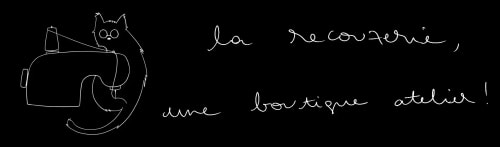 la recouzerie,
une boutique atelier!